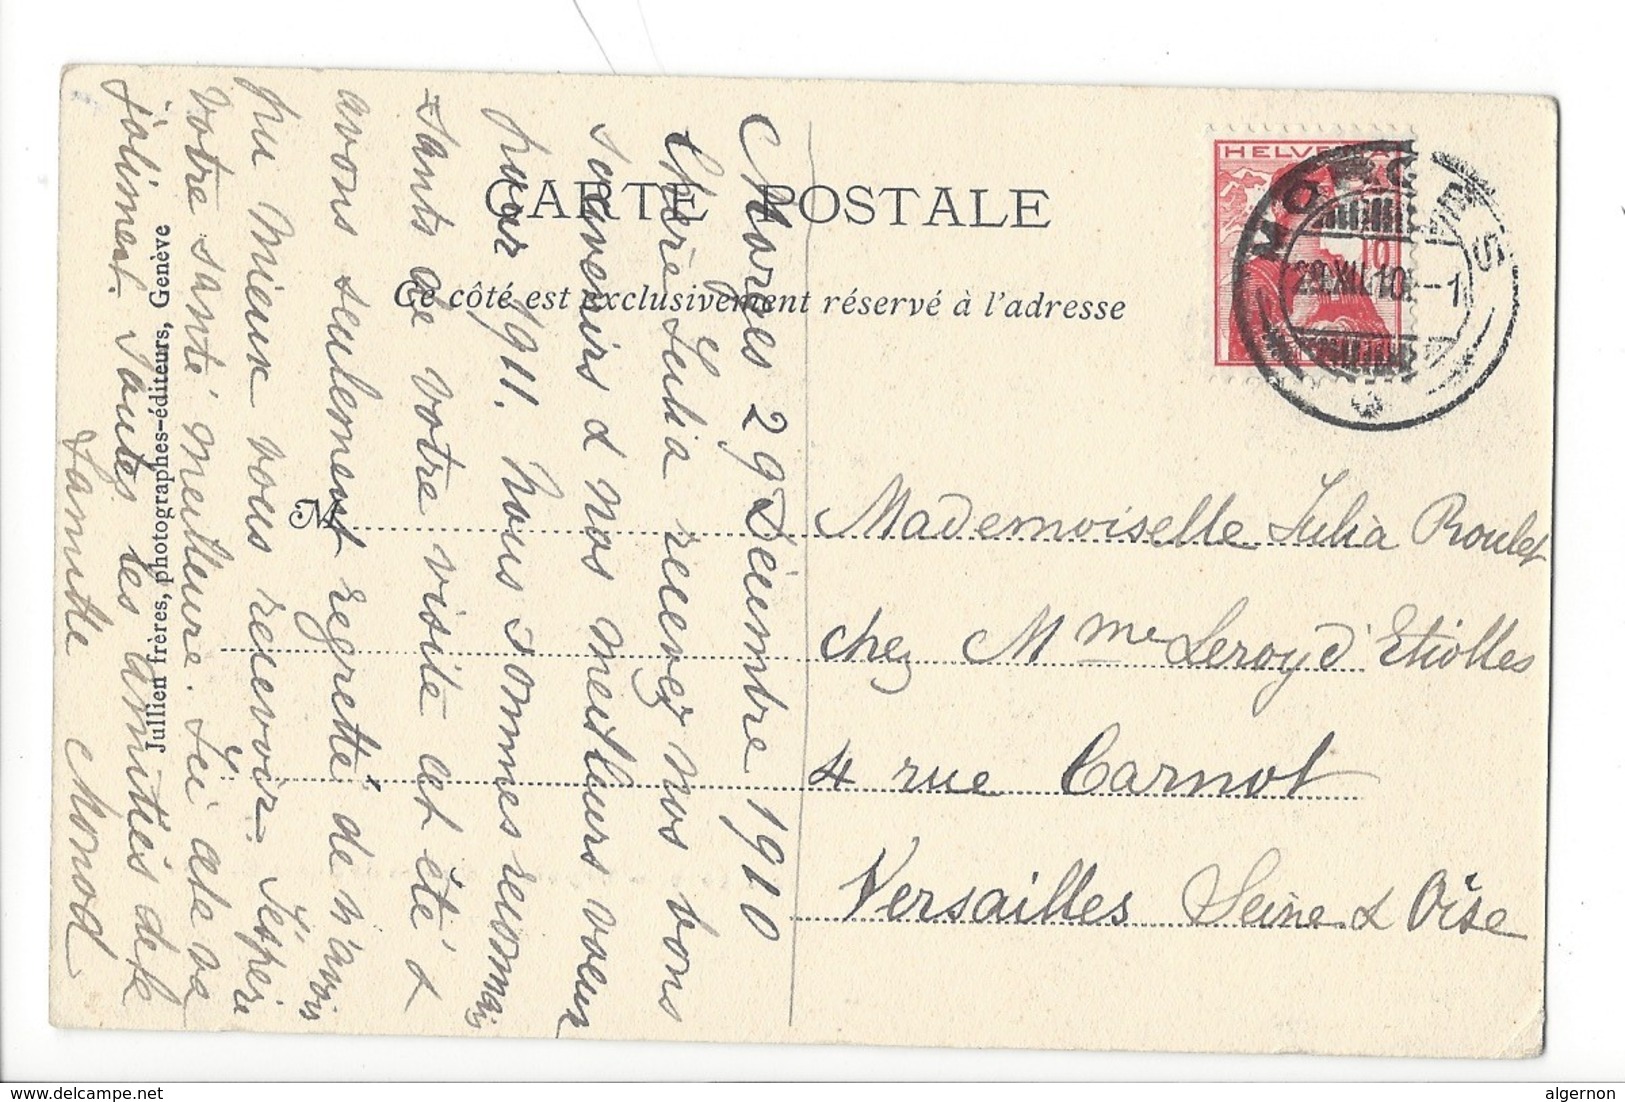 CARTE POSTALE
Ce côté est exclusivement réservé à l'adresse
HELVETIA
10
MORGES
29.XII.10 -1
M
Mademoiselle Julia Roulet
chez Mme Leroy d'Etiolles
4 rue Carnot
Versailles Seine & Oise
Morges 29 Décembre 1910
Chère Julia recevez nos bons
souvenirs & nos meilleurs voeux
pour 1911. nous sommes reconnais
sants de votre visite cet été &
avons seulement regretté de n'avoir
pu mieux vous recevoir. J'espère
votre santé meilleure. Ici cela va
joliment. Toutes les amitiés de la
famille Monod
Jullien frères, photographes-éditeurs, Genève
www.delcampe.net
algernon